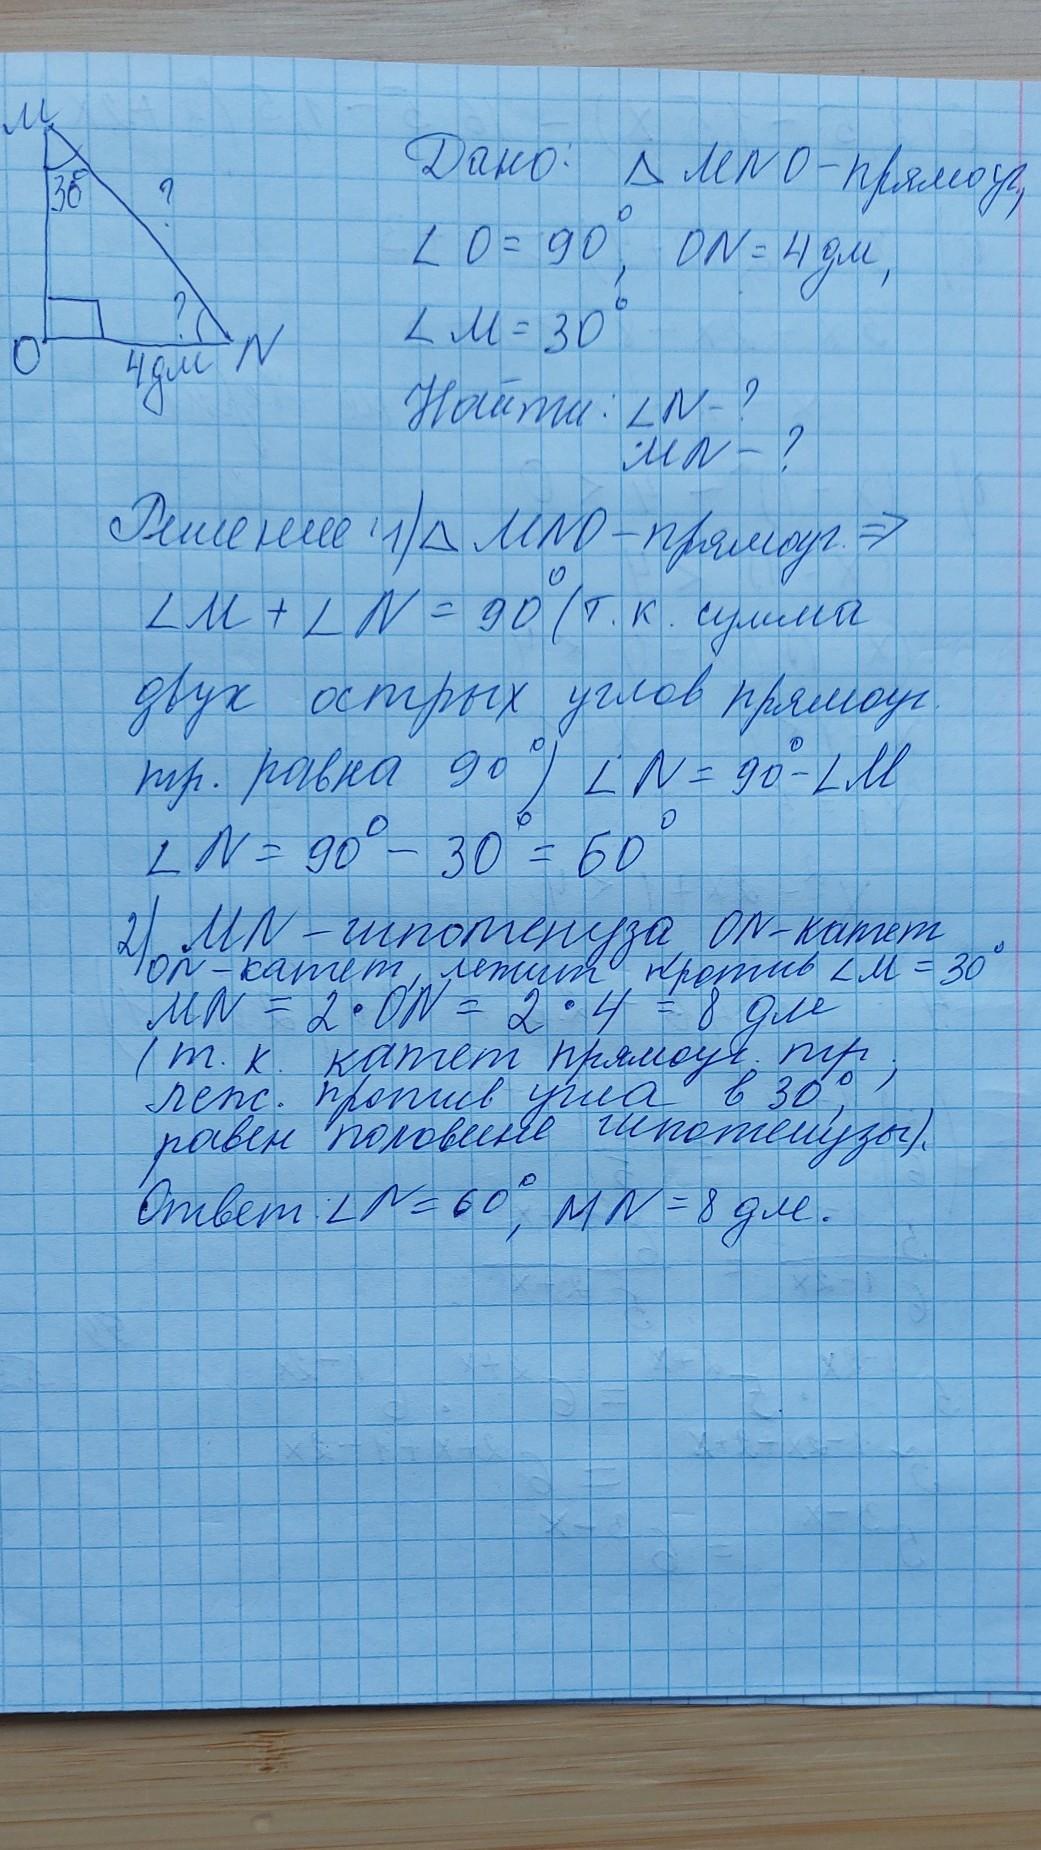 M
30°
?
?
O
4дм
N
Дано: △ MNO - прямоуг,
∠O = 90°, ON = 4 дм,
∠M = 30°
Найти: ∠N - ?
MN - ?
Решение: 1) △ MNO - прямоуг. ⇒
∠M + ∠N = 90° (т.к. сумма
двух острых углов прямоуг.
тр. равна 90°) ∠N = 90° - ∠M
∠N = 90° - 30° = 60°
2) MN - гипотенуза ON - катет
ON - катет, лежит против ∠M = 30°
MN = 2 · ON = 2 · 4 = 8 дм
(т.к. катет прямоуг. тр,
леж. против угла в 30°,
равен половине гипотенузы).
Ответ: ∠N = 60°, MN = 8 дм.